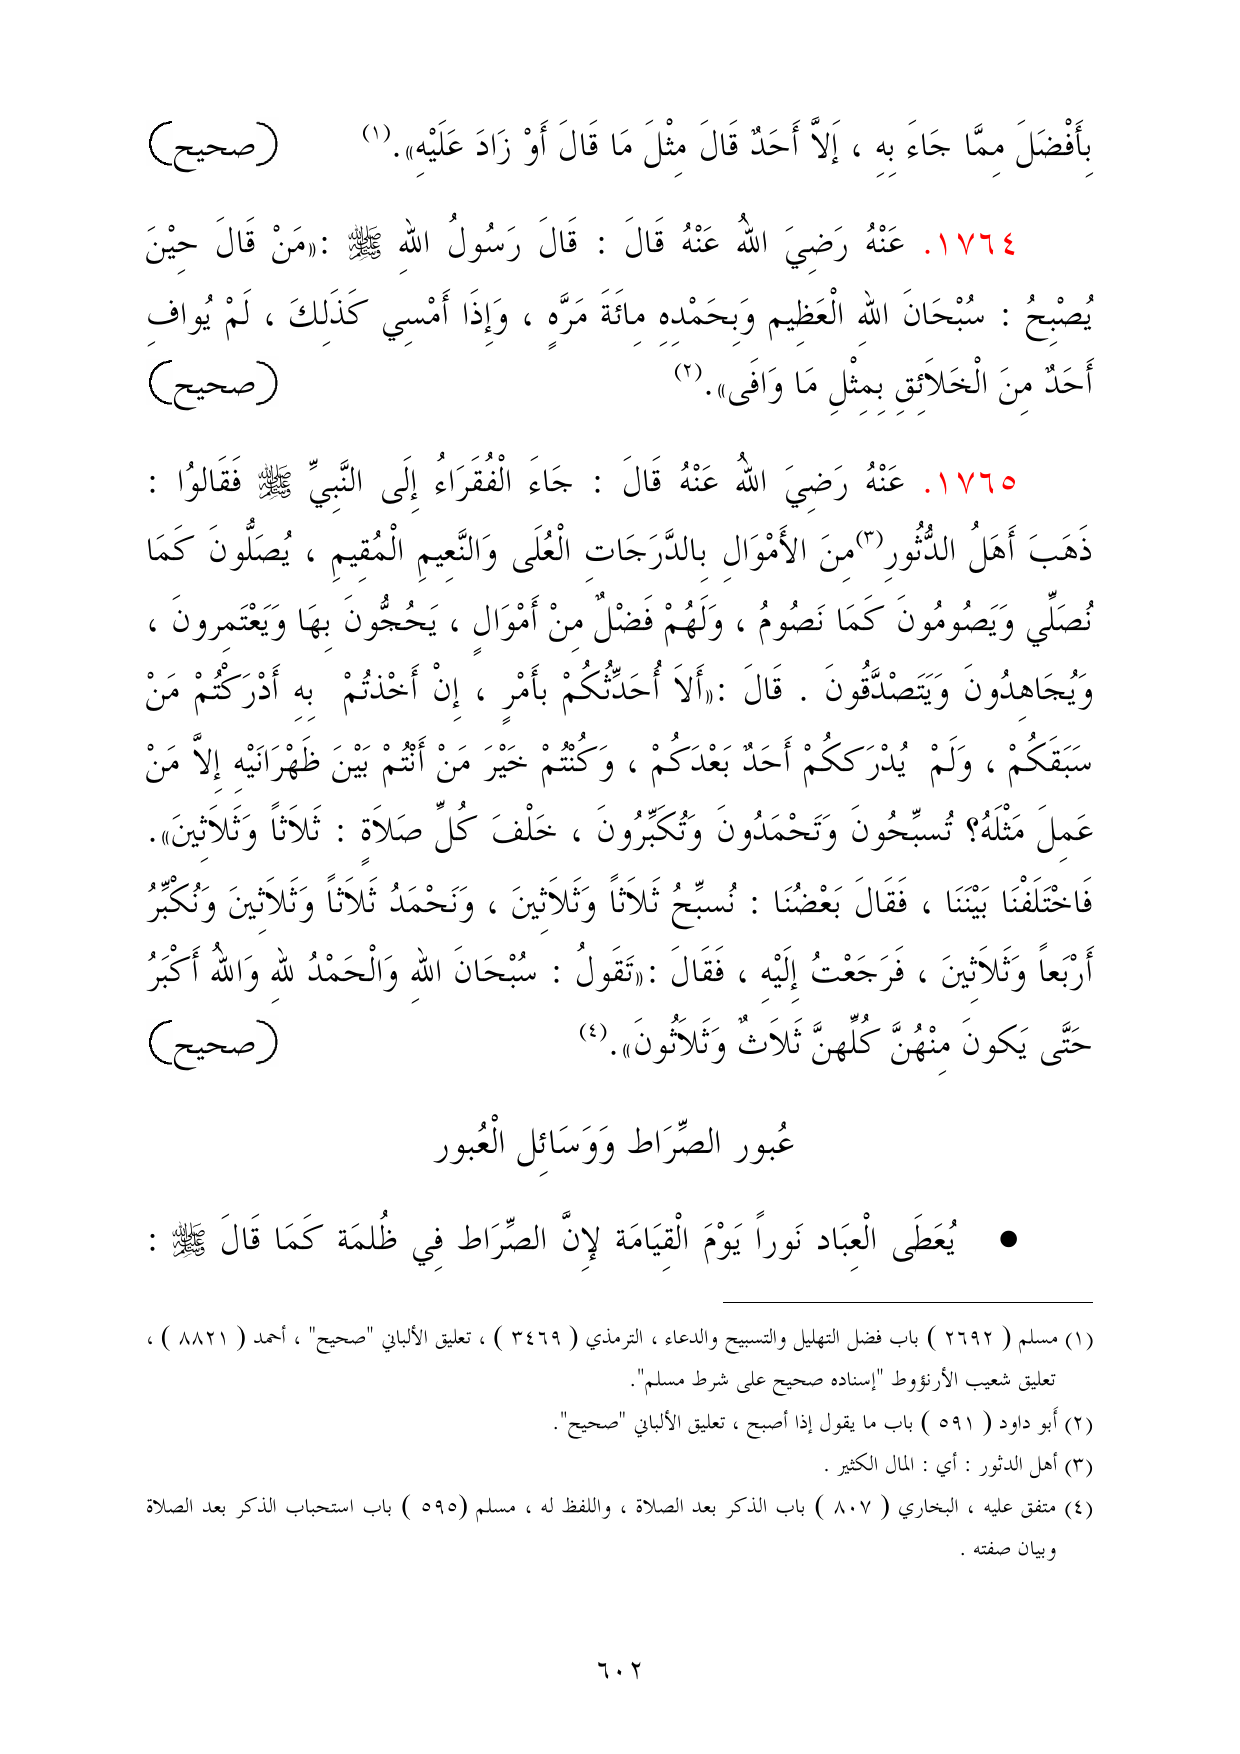 بِأَفْضَلَ مِمَّا جَاءَ بِهِ ، إَلاَّ أَحَدٌ قَالَ مِثْلَ مَا قَالَ أَوْ زَادَ عَلَيْهِ».(١) (صحيح)
١٧٦٤. عَنْهُ رَضِيَ اللهُ عَنْهُ قَالَ : قَالَ رَسُولُ اللهِ ﷺ :«مَنْ قَالَ حِيْنَ
يُصْبِحُ : سُبْحَانَ اللهِ الْعَظِيمِ وَبِحَمْدِهِ مِائَةَ مَرَّهٍ ، وَإِذَا أَمْسِي كَذَلِكَ ، لَمْ يُوافِ
أَحَدٌ مِنَ الْخَلاَئِقِ بِمِثْلِ مَا وَافَى».(٢) (صحيح)
١٧٦٥. عَنْهُ رَضِيَ اللهُ عَنْهُ قَالَ : جَاءَ الْفُقَرَاءُ إِلَى النَّبِيِّ ﷺ فَقَالوُا :
ذَهَبَ أَهَلُ الدُّثُورِ(٣)مِنَ الأَمْوَالِ بِالدَّرَجَاتِ الْعُلَى وَالنَّعِيمِ الْمُقِيمِ ، يُصَلُّونَ كَمَا
نُصَلِّي وَيَصُومُونَ كَمَا نَصُومُ ، وَلَهُمْ فَضْلٌ مِنْ أَمْوَالٍ ، يَحُجُّونَ بِهَا وَيَعْتَمِرونَ ،
وَيُجَاهِدُونَ وَيَتَصْدَّقُونَ . قَالَ :«أَلاَ أُحَدِّثُكُمْ بِأَمْرٍ ، إِنْ أَخْذتُمْ بِهِ أَدْرَكْتُمْ مَنْ
سَبَقَكُمْ ، وَلَمْ يُدْرَككُمْ أَحَدٌ بَعْدَكُمْ ، وَكُنْتُمْ خَيْرَ مَنْ أَنْتُمْ بَيْنَ ظَهْرَانَيْهِ إِلاَّ مَنْ
عَمِلَ مَثْلَهُ؟ تُسبِّحُونَ وَتَحْمَدُونَ وَتُكَبِّرُونَ ، خَلْفَ كُلِّ صَلاَةٍ : ثَلاَثاً وَثَلاَثِينَ».
فَاخْتَلَفْنَا بَيْنَنَا ، فَقَالَ بَعْضُنَا : نُسبِّحُ ثَلاَثاً وَثَلاَثِينَ ، وَنَحْمَدُ ثَلاَثاً وَثَلاَثِينَ وَنُكْبِّرُ
أَرْبَعاً وَثَلاَثِينَ ، فَرَجَعْتُ إِلَيْهِ ، فَقَالَ :«تَقَولُ : سُبْحَانَ اللهِ وَالْحَمْدُ للهِ وَاللهُ أَكْبَرُ
حَتَّى يَكونَ مِنْهُنَّ كُلِّهِنَّ ثَلاَثٌ وَثَلاَثُونَ».(٤) (صحيح)
عُبور الصِّرَاط وَوَسَائِل الْعُبور
● يُعَطَى الْعِبَاد نَوراً يَوْمَ الْقِيَامَة لإِنَّ الصِّرَاط فِي ظُلمَة كَمَا قَالَ ﷺ :
(١) مسلم ( ٢٦٩٢ ) باب فضل التهليل والتسبيح والدعاء ، الترمذي ( ٣٤٦٩ ) ، تعليق الألباني "صحيح" ، أحمد ( ٨٨٢١ ) ،
تعليق شعيب الأرنؤوط "إسناده صحيح على شرط مسلم".
(٢) أَبو داود ( ٥٩١ ) باب ما يقول إذا أصبح ، تعليق الألباني "صحيح".
(٣) أهل الدثور : أي : المال الكثير .
(٤) متفق عليه ، البخاري ( ٨٠٧ ) باب الذكر بعد الصلاة ، واللفظ له ، مسلم (٥٩٥ ) باب استحباب الذكر بعد الصلاة
وبيان صفته .
٦٠٢